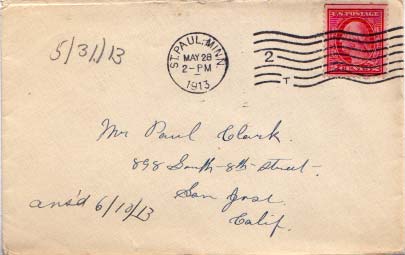 5/31/13
ST. PAUL, MINN.
MAY 28
2-PM
1913
2
T
U.S. POSTAGE
2 CENTS 2
Mr Paul Clark.
898 South-8th-Street.
San Jose.
Calif.
ans'd 6/10/13